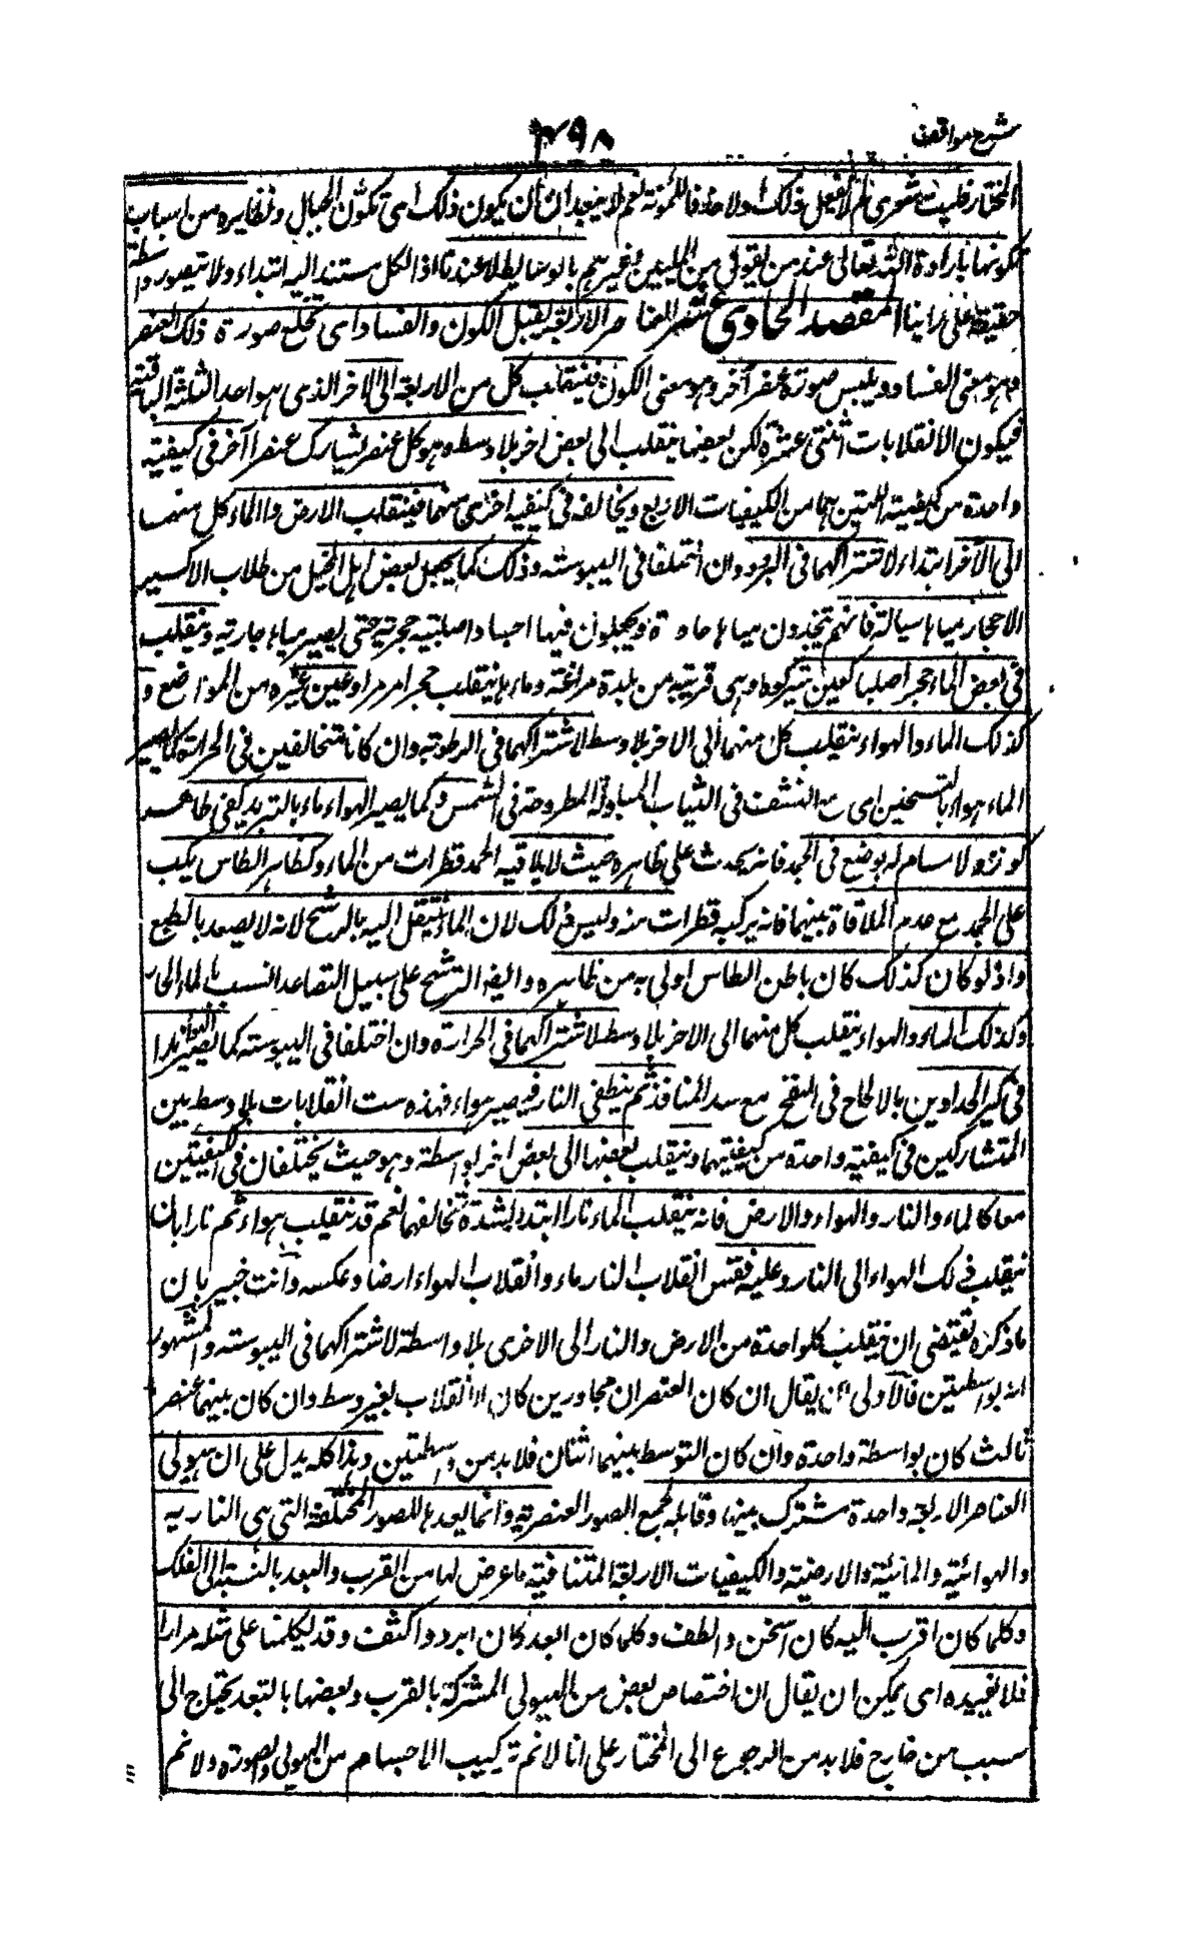 شرح مواقف
٤٩٨
المختار فليت شعرى لم لا يفعل ذلك أولا حذفا للمؤنة نعم لا يبعد ان يكون ذلك اى تكوّن الجبال ونظايره من اسباب
تكونها بارادة الله تعالى عند من يقول من المليين وغيرهم بالوسايط لا عندنا اذ الكل مستند اليه ابتداء ولا يتصور واسطة
حقيقة على راينا المقصد الحادى عشر العناصر الاربعة يقبل الكون والفساد اى يخلع صورة ذلك العنصر
وهو معنى الفساد ويلبس صورة عنصر آخر وهو معنى الكون فينقلب كل من الاربعة الى الاخر الذى هو احد الثلثة الباقية
فيكون الانقلابات اثنتى عشرة لكن بعضها ينقلب الى بعض اخر بلا وسط وهو كل عنصر يشارك عنصرا آخر فى كيفية
واحدة من كيفيتيه اللتين هما من الكيفيات الاربع ويخالفه فى كيفية اخرى منهما فينقلب الارض والماء كل منهما
الى الآخر ابتداء لاشتراكهما فى البرد وان اختلفا فى اليبوسة وذلك كما يجعل بعض اهل الحيل من طلاب الاكسير
الاحجار مياها سيالة فانهم يتخذون مياها حادة ويجعلون فيها اجسادا صلبة حجرية حتى يصير مياها جارية وينقلب
فى بعض الماء حجرا صلبا كعين سيركوه وهى قرية من بلدة مراغة وماءها ينقلب حجرا مرمرا وعين غيره من المواضع و
كذلك الماء والهواء ينقلب كل منهما الى الاخر بلا وسط لاشتراكهما فى الرطوبة وان كانا متخالفين فى الحرارة كما يصير
الماء هواء بالتسخين اى التنشف فى الثياب المبلولة المطروحة فى الشمس وكما يصير الهواء ماء بالتبريد كفى طاهر
كوز لا مسام له يوضع فى الجمد فانه يحدث على ظاهره حيث لا يلاقيه الجمد قطرات من الماء وكظاهر الطاس يكب
على الجمد مع عدم الملاقاة بينهما فانه يركبه قطرات منه وليس ذلك لان الماء ينتقل اليه بالرشح لانه لا يصعد بالطبع
واذ لو كان كذلك كان باطن الطاس اولى به من ظاهره وايضا الترشح على سبيل التصاعد انسب بالماء الحار
وكذلك الماء والهواء ينقلب كل منهما الى الاخر بلا وسط لاشتراكهما فى الحرارة وان اختلفا فى اليبوسة كما يصير الهواء نارا
فى كير الحدادين بالالحاح فى النفخ مع سد المنافذ ثم ينطفى النار فيصير هواء فهذه ست انقلابات بلا وسط بين
المتشاركين فى كيفية واحدة من كيفيتيهما وينقلب بعضها الى بعض اخر بواسطة وهو حيث يختلفان فى الكيفيتين
معا كالماء والنار والهواء والارض فانه ينقلب الماء نارا ابتداء لشدة تخالفهما نعم قد ينقلب هواء ثم نارا بان
ينقلب ذلك الهواء الى النار وعليه فقس انقلاب النار ماء وانقلاب الهواء ارضا وعكسه وانت خبير بان
ما ذكره يقتضى ان ينقلب كلواحدة من الارض والنار الى الاخرى بلا واسطة لاشتراكهما فى اليبوسة والمشهور
انه بواسطتين فالأولى ان يقال ان كان العنصران مجاورين كان الانقلاب بغير وسط وان كان بينهما عنصر
ثالث كان بواسطة واحدة وان كان التوسط بينهما اثنان فلا بد من واسطتين وهذا كله يدل على ان هيولى
العناصر الاربعة واحدة مشترك بينها وقابلة لجميع الصور العنصرية وانما يعدها للصور المختلفة التى هى النارية
والهوائية والمائية والارضية والكيفيات الاربعة المتنافية ما عرض لها من القرب والبعد بالنسبة الى الفلك
وكلما كان اقرب اليه كان اسخن والطف وكلما كان ابعد كان ابرد واكثف وقد تكلمنا على مثله مرارا
فلا نعيده اى يمكن ان يقال ان اختصاص بعض من الهيولى المشتركة بالقرب وبعضها بالبعد يحتاج الى
سبب من خارج فلا بد من الرجوع الى المختار على انا لا نم تركيب الاجسام من الهيولى والصورة ولا نم